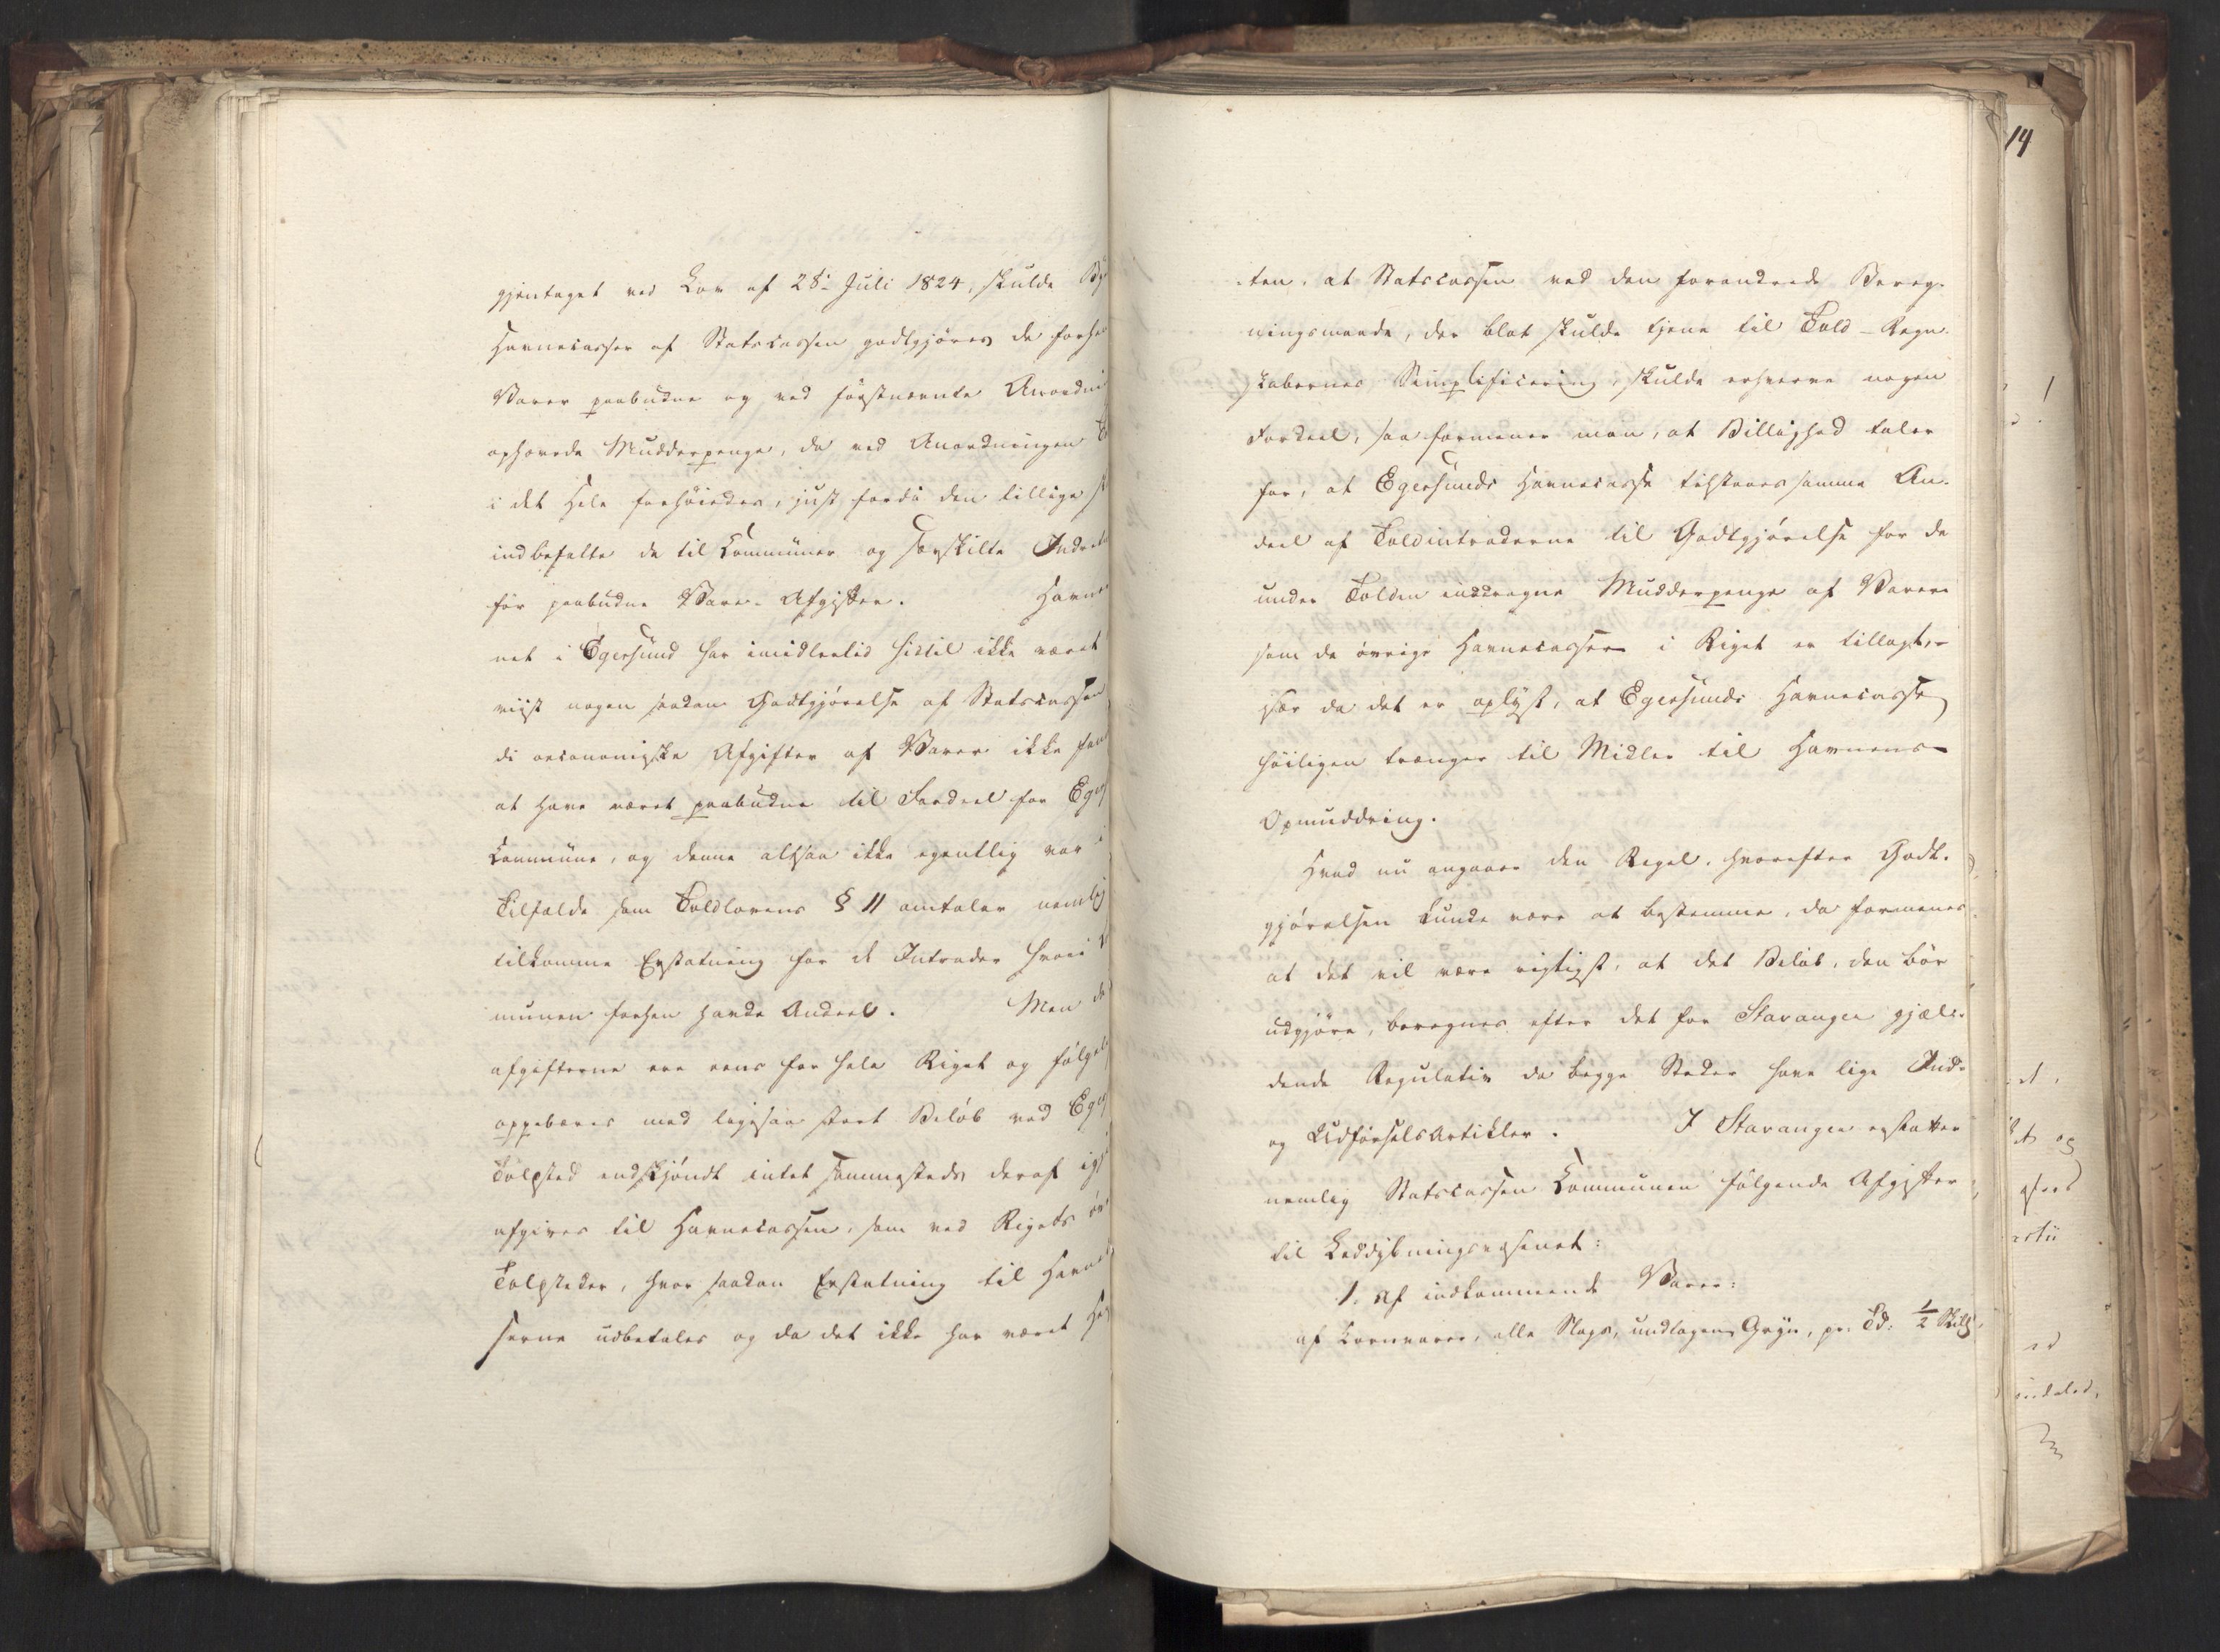 gjentaget ved Lov af 28de Juli 1824, skulde
Havnecasser af Statscassen godtgjøres de forhen
Varer paabudne og ved førstnævnte
ophævede Mudderpenge, da ved Anordningen
i det Hele forhøiedes, just fordi den tillige
indbefatte de til Communer og særskilte
før paabudne Vare-Afgifter. Havne
net i Egersund har imidlertid hidtil ikke været
viist nogen saadan Godtgjørelse af Statscassen
di oeconomiske Afgifter af Varer ikke
at have været paabudne til Fordeel for
Commune, og denne altsaa ikke egentlig var i
Tilfælde som Toldlovens § 11 omtaler nemlig
tilkomme Erstatning for de Intrader hvori
munen forhen havde Andeel. Men
afgifterne ere eens for hele Riget og
oppebæres med ligesaa stort Beløb ved
Toldsted endskjøndt intet sammesteds deraf
afgives til Havnecassen, som ved Rigets
Toldsteder, hvor saadan Erstatning til
serne udbetales og da det ikke har været
14
-ten, at Statscassen ved den forandrede Bereg-
ningsmaade, der blot skulde tjene til Told-Regn-
skabernes Simplificering, skulde erhverve nogen
Fordeel, saa formener man, at Billighed taler
for, at Egersunds Havnecasse tilstaaes samme An-
deel af Toldintraderne til Godtgjørelse for de
under Tolden inddragne Mudderpenge af Varer
som de øvrige Havnecasser i Riget er tillagt,
især da det er oplyst, at Egersunds Havnecasse
høiligen trænger til Midler til Havnens
Opmuddring.
Hvad nu angaaer den Regel, hvorefter Godt-
gjørelsen kunde være at bestemme, da formenes
at det vil være rigtigst, at det Beløb, den bør
udgjøre, beregnes efter det for Stavanger gjæl-
dende Regulativ da begge Steder have lige Ind-
og Udførselsartikler. I Stavanger erstatter
nemlig Statscassen Communen følgende Afgifter
til
1. Af indkommende Varer:
af Kornvarer, alle Slags, undtagen Gryn, pr. Td: ½ Skill.